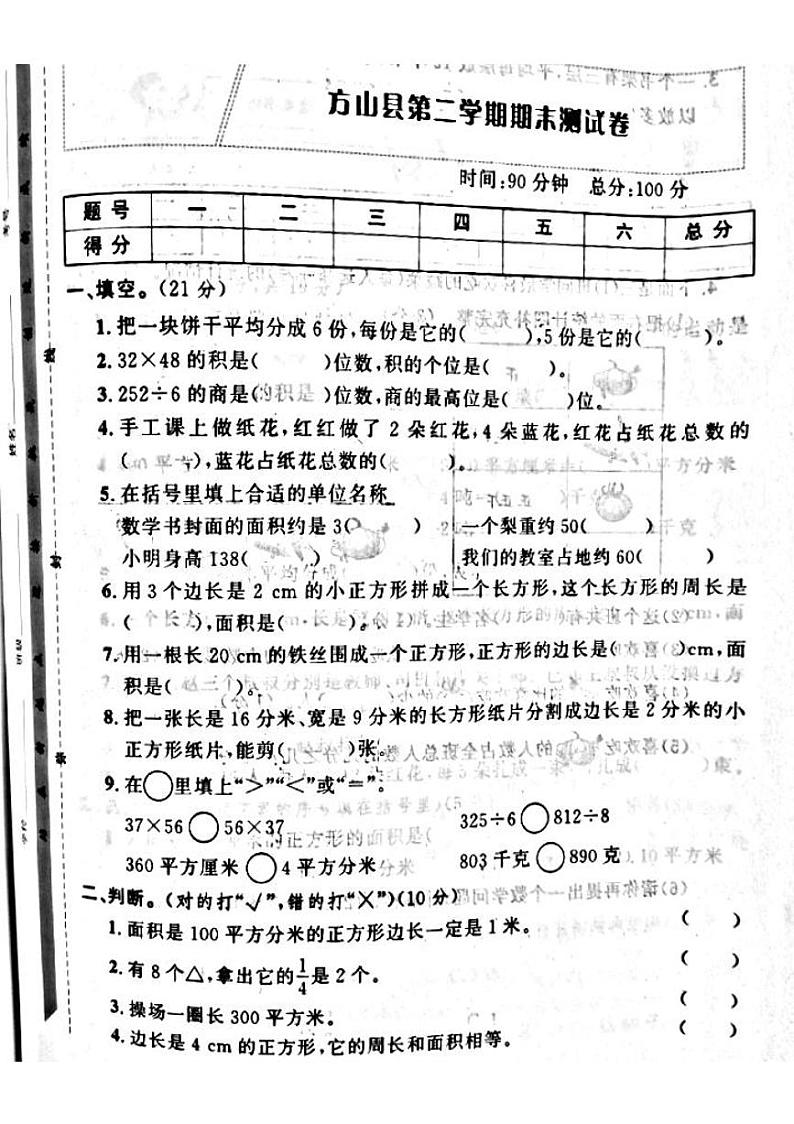 方山县第二学期期末测试卷
时间:90分钟 总分:100分
题号 一 二 三 四 五 六 总分
得分
一、填空。(21分)
1.把一块饼干平均分成6份,每份是它的( ),5份是它的( )。
2.32×48的积是( )位数,积的个位是( )。
3.252÷6的商是( )位数,商的最高位是( )位。
4.手工课上做纸花,红红做了2朵红花,4朵蓝花,红花占纸花总数的
( ),蓝花占纸花总数的( )。
5.在括号里填上合适的单位名称
数学书封面的面积约是3( ) 一个梨重约50( )
小明身高138( ) 我们的教室占地约60( )
6.用3个边长是2 cm的小正方形拼成一个长方形,这个长方形的周长是
( ),面积是( )。
7.用一根长20 cm的铁丝围成一个正方形,正方形的边长是( )cm,面
积是( )。
8.把一张长是16分米、宽是9分米的长方形纸片分割成边长是2分米的小
正方形纸片,能剪( )张。
9.在○里填上“>”“<”或“=”。
37×56○56×37 325÷6○812÷8
360平方厘米○4平方分米 803千克○890克
二、判断。(对的打“√”,错的打“×”)(10分)
1.面积是100平方分米的正方形边长一定是1米。 ( )
2.有8个△,拿出它的1/4是2个。 ( )
3.操场一圈长300平方米。 ( )
4.边长是4 cm的正方形,它的周长和面积相等。 ( )